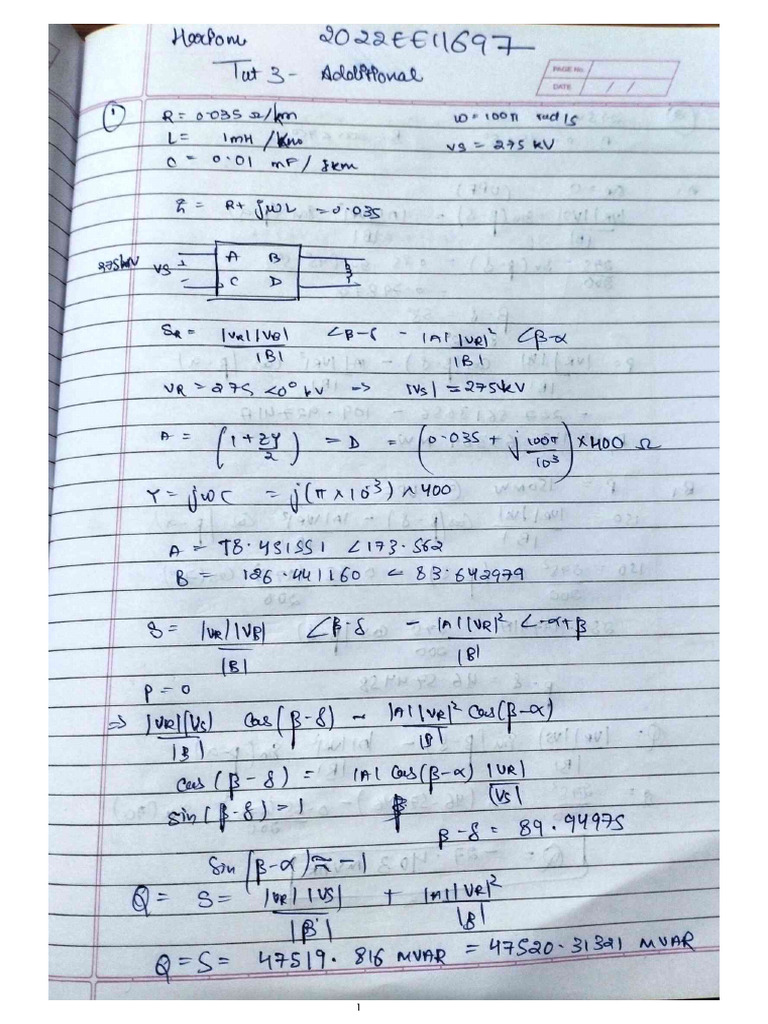 Harpom 2022EE11697
Tut 3 - Additional
PAGE No.
DATE / /
① R = 0.035 Ω/km ω = 100π rad/s
L = 1mH /km VS = 275 kV
C = 0.01 mF / km
Z = R + jωL = 0.035
275kV VS A B
C D
SR = |VR||VB| ∠β-δ - |A||VR|² ∠β-α
|B| |B|
VR = 275 ∠0° kV => |VS| = 275kV
A = (1 + ZY/2) = D = (0.035 + j 100π/10³) × 400 Ω
Y = jωC = j(π × 10³) × 400
A = 78.451551 ∠173.562
B = 126.441160 ∠ 83.642979
S = |VR||VB| ∠β-δ - |A||VR|² ∠-α+β
|B| |B|
P = 0
=> |VR||VS| cos(β-δ) - |A||VR|² cos(β-α)
|B| |B|
cos(β-δ) = |A| cos(β-α) |VR|
|VS|
sin(β-δ) = 1
β-δ = 89.94975
sin(β-α) ≈ -1
Q = S = |VR||VS| + |A||VR|²
|B| |B|
Q = S = 47519.816 MVAR = 47520.31321 MVAR
1